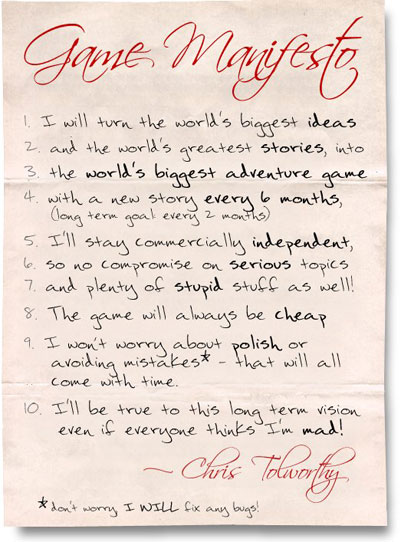 Game Manifesto
1. I will turn the world's biggest ideas
2. and the world's greatest stories, into
3. the world's biggest adventure game
4. with a new story every 6 months,
(long term goal: every 2 months)
5. I'll stay commercially independent,
6. so no compromise on serious topics
7. and plenty of stupid stuff as well!
8. The game will always be cheap
9. I won't worry about polish or
avoiding mistakes* - that will all
come with time.
10. I'll be true to this long term vision
even if everyone thinks I'm mad!
~ Chris Tolworthy
*don't worry I WILL fix any bugs!